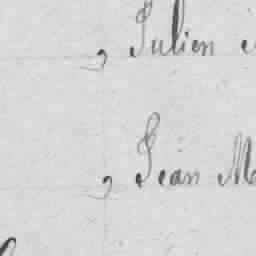 , Julien
, Jean M